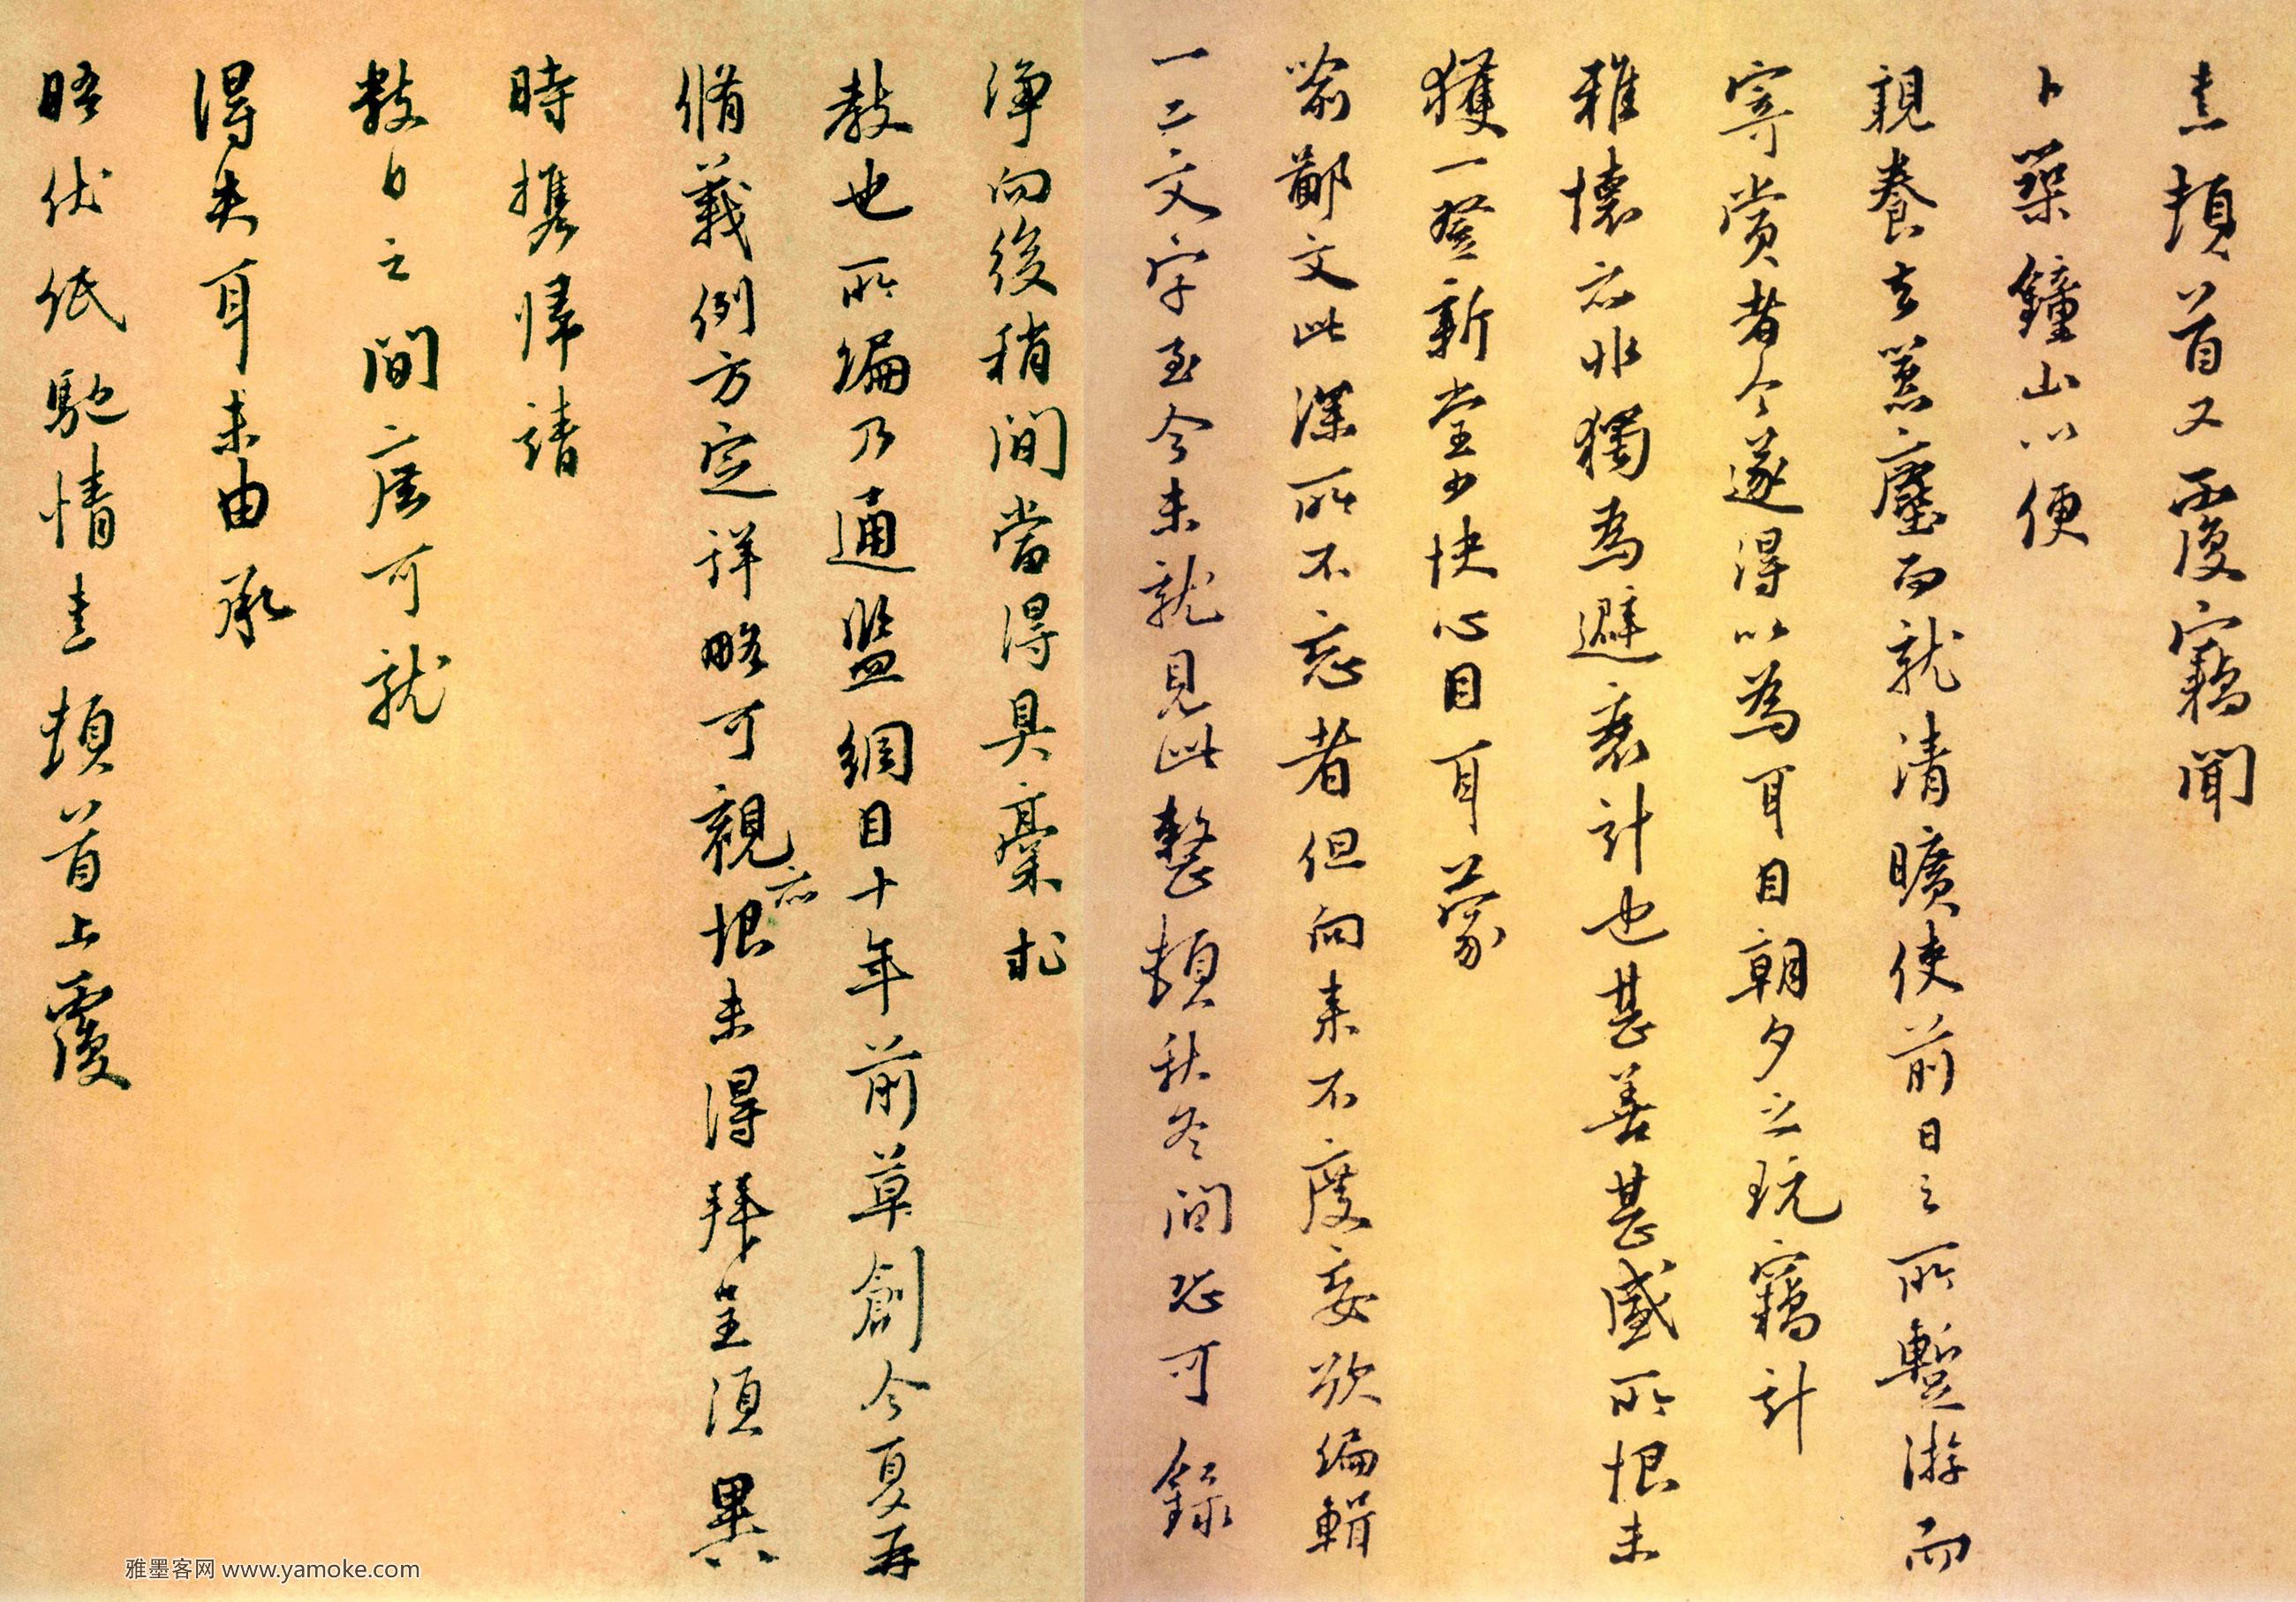 熹頓首又覆竊聞
卜築鐘山以便
親養去囂塵而就清曠使前日之所暫游而
寄賞者今遂得以為耳目朝夕之玩竊計
雅懷亦非獨為避衰計也甚善甚盛所恨未
獲一登新堂少快心目耳蒙
喻鄙文此深所不忘者但向來不度妄欲編輯
一二文字至今未就見此整頓秋冬間恐可錄
淨向後稍間當得具稾求
教也所編乃通鑑綱目十年前草創今夏再
脩義例方定詳略可觀亦恨未得拜呈須異
時攜歸請
數日之間庶可就
得失耳未由承
晤伏紙馳情熹頓首上覆
雅墨客网 www.yamoke.com